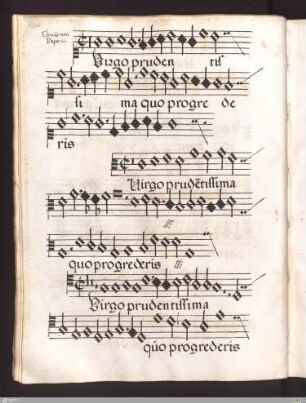 Virgo pruden tis
si ma quo progre de
ris
Virgo prudētissima
quo progrederis
Virgo prudentissima
quo progrederis